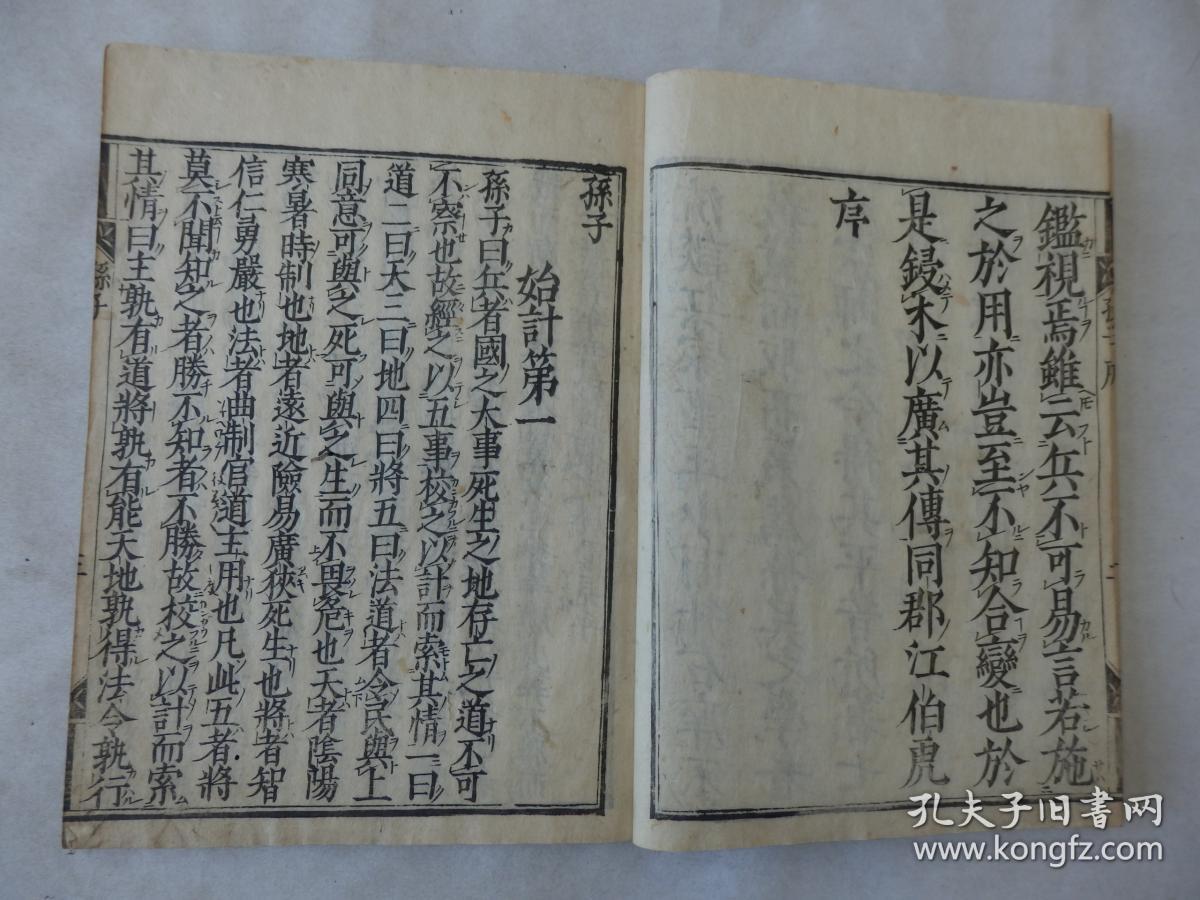 鑑視焉雖云兵不可易言若施
之於用亦豈至不知合變也於
是鋟木以廣其傳同郡江伯虎
序
孫子
始計第一
孫子曰兵者國之大事死生之地存亡之道不可
不察也故經之以五事校之以計而索其情一曰
道二曰天三曰地四曰將五曰法道者令民與上
同意可與之死可與之生而不畏危也天者陰陽
寒暑時制也地者遠近險易廣狹死生也將者智
信仁勇嚴也法者曲制官道主用也凡此五者將
莫不聞知之者勝不知者不勝故校之以計而索
其情曰主孰有道將孰有能天地孰得法令孰行
孫子
二
孔夫子旧书网
www.kongfz.com